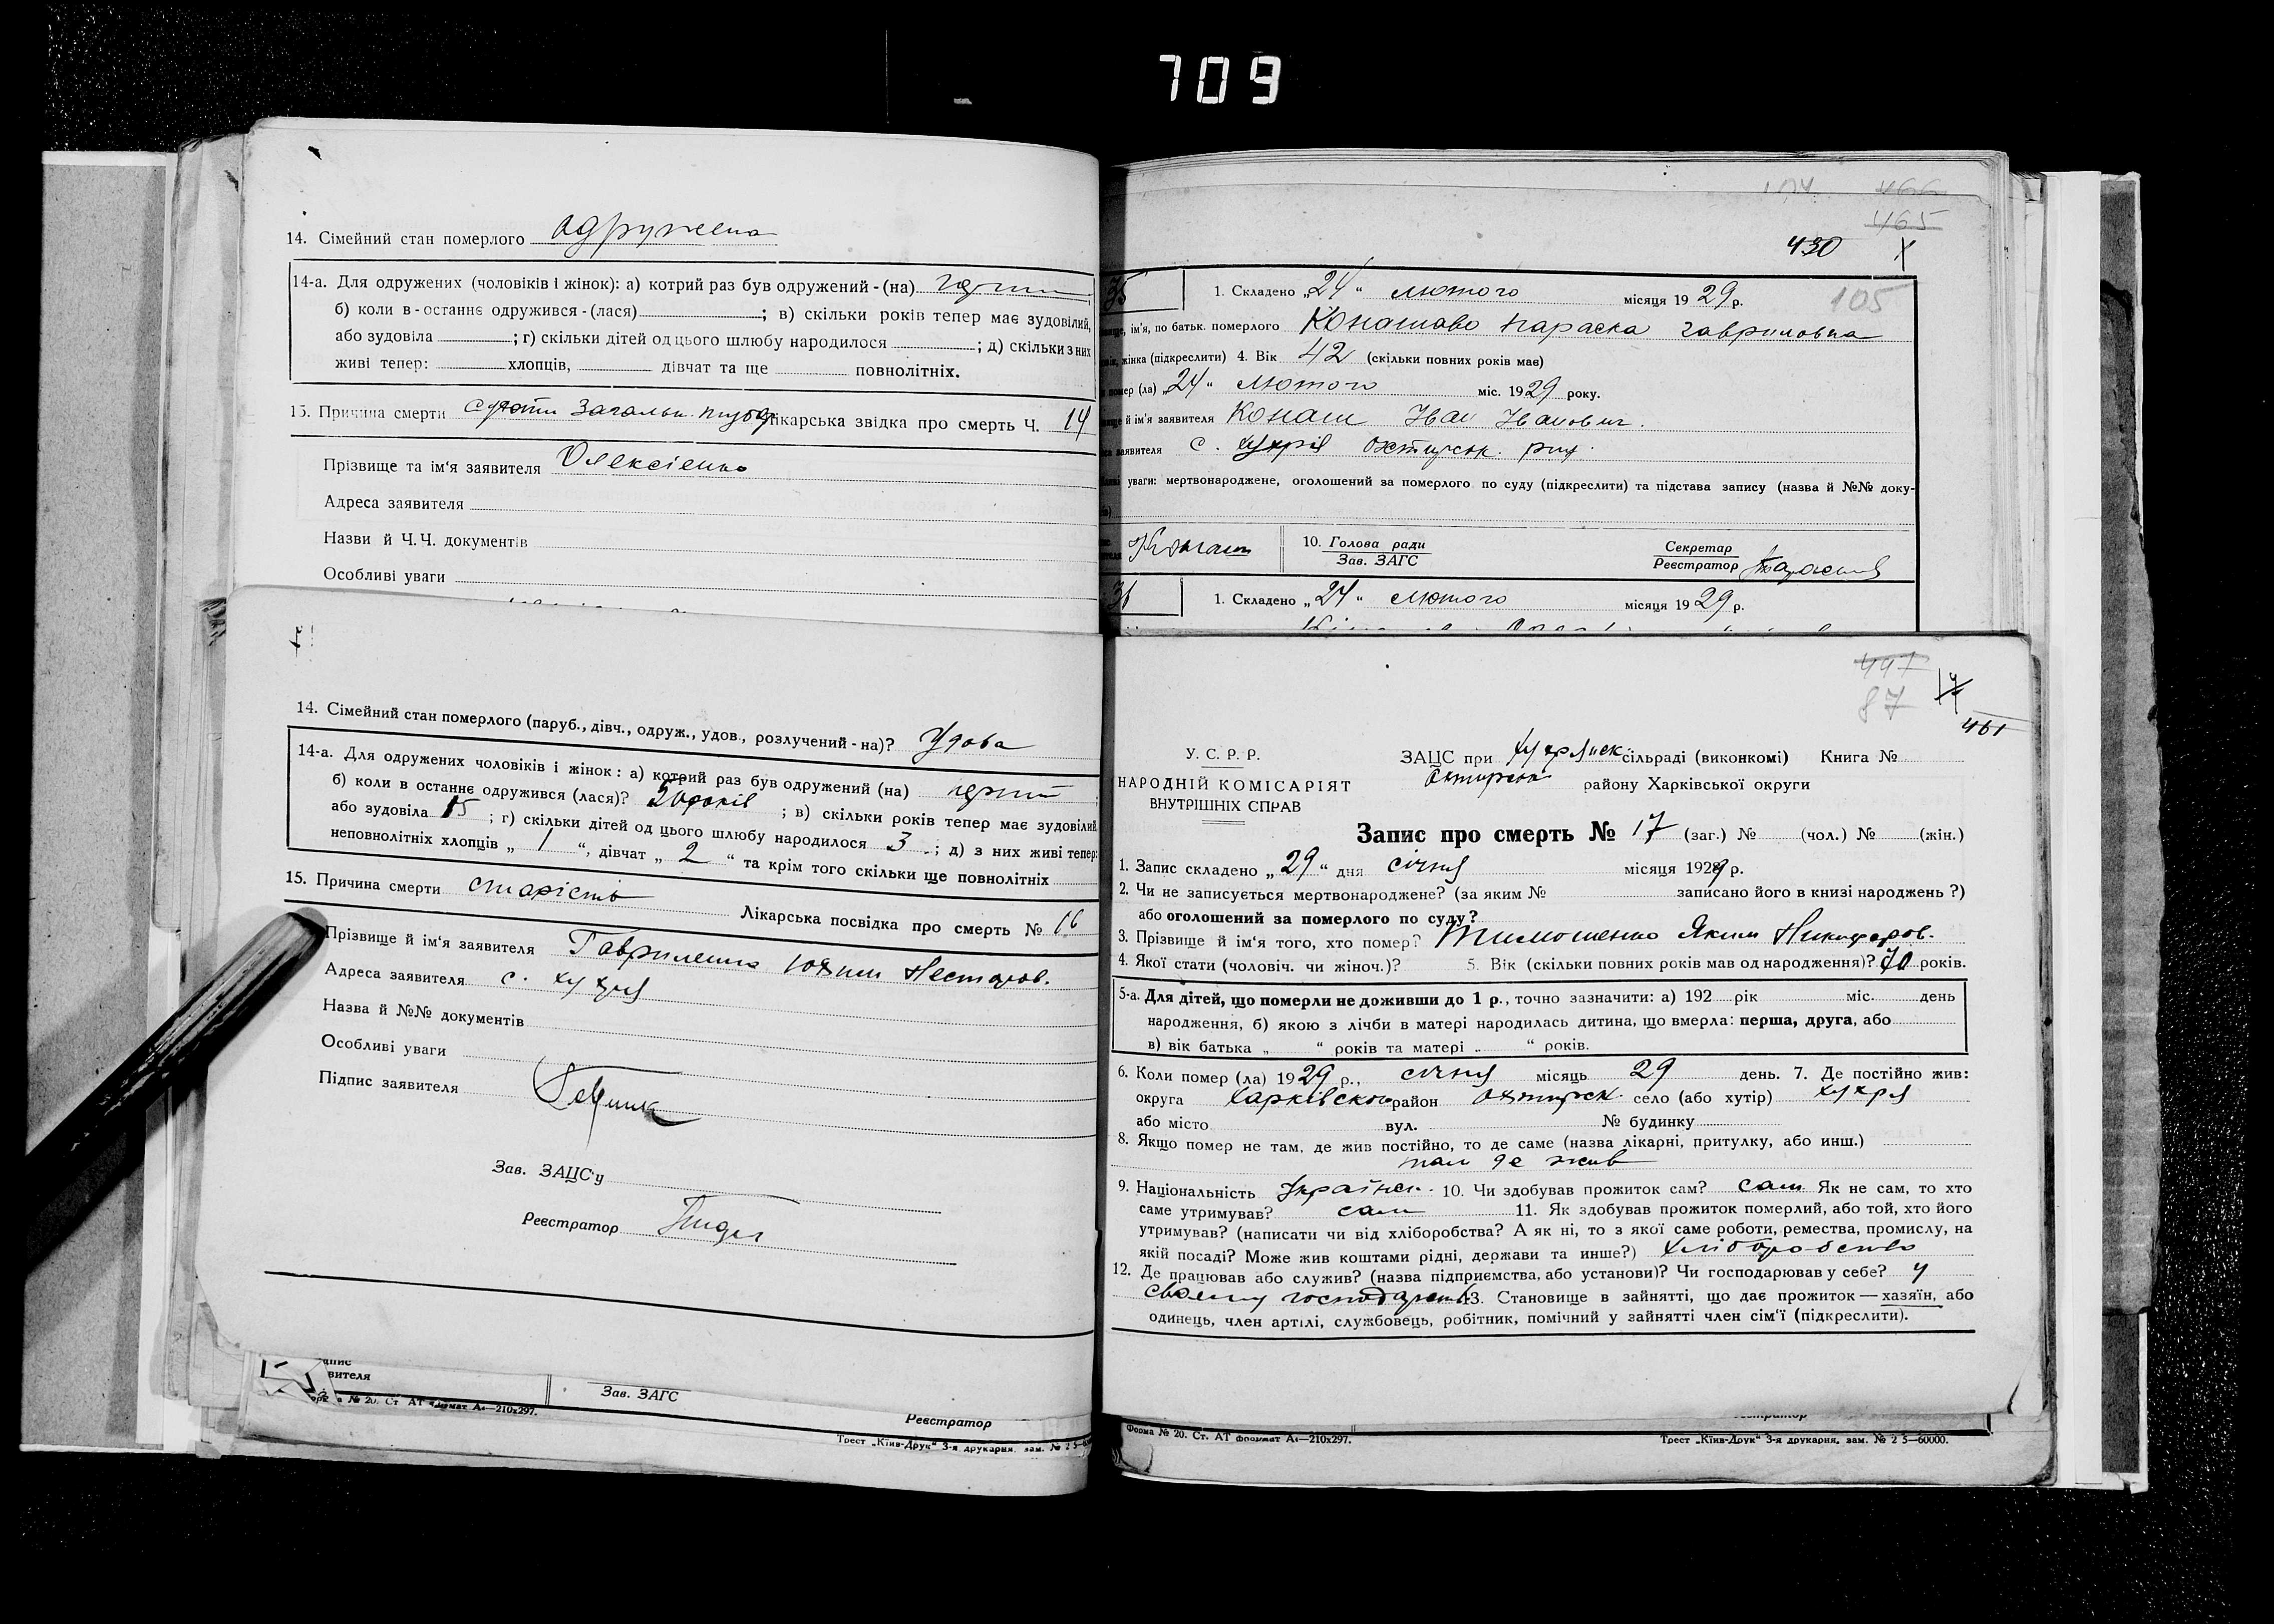 709
14. Сімейний стан померлого одружена
14-а. Для одружених (чоловіків і жінок): а) котрий раз був одружений-(на)
б) коли в-останнє одружився-(лася) ; в) скільки років тепер має зудовілий,
або зудовіла ; г) скільки дітей од цього шлюбу народилося ; д) скільки з них
живі тепер: хлопців, дівчат та ще повнолітніх.
15. Причина смерти Лікарська звідка про смерть Ч. 14
Прізвище та ім'я заявителя Олексієнко
Адреса заявителя
Назви й Ч.Ч. документів
Особливі уваги
14. Сімейний стан померлого (паруб., дівч., одруж., удов., розлучений-на)? Удова
14-а. Для одружених чоловіків і жінок: а) котрий раз був одружений (на)
б) коли в останнє одружився (лася)? 20 років ; в) скільки років тепер має зудовілий
або зудовіла 15 ; г) скільки дітей од цього шлюбу народилося 3 ; д) з них живі тепер:
неповнолітніх хлопців „ 1 “, дівчат „ 2 “ та крім того скільки ще повнолітніх
15. Причина смерти старість Лікарська посвідка про смерть № 16
Прізвище й ім'я заявителя Гавриленко Нестеров.
Адреса заявителя с. Хухря
Назва й №№ документів
Особливі уваги
Підпис заявителя
Зав. ЗАЦС'у
Реєстратор
апис
вителя
Зав. ЗАГС
№ 20. Ст АТ формат А4—210х297.
Реєстратор
Трест „Київ-Друк“ 3-я друкарня, зам. № 2 5
466
465
430
105
35
1. Складено „24“ лютого місяця 1929 р.
ім'я, по батьк. померлого Конашова Параска Гавриловна
жінка (підкреслити) 4. Вік 42 (скільки повних років має)
помер (ла) „24“ лютого міс. 1929 року.
й ім'я заявителя Конаш Іван Іванович.
заявителя с. Хухря Охтирськ. рну
уваги: мертвонароджене, оголошений за померлого по суду (підкреслити) та підстава запису (назва й №№ доку-
Конаш
10. Голова ради
Зав. ЗАГС
Секретар
Реєстратор
36
1. Складено „24“ лютого місяця 1929 р.
447
87
17
461
У. С. Р. Р.
НАРОДНІЙ КОМІСАРІЯТ
ВНУТРІШНІХ СПРАВ
ЗАЦС при Хухрянск сільраді (виконкомі) Книга №
Охтирськ району Харківської округи
Запис про смерть № 17 (заг.) № (чол.) № (жін.)
1. Запис складено „29“ дня січня місяця 1929 р.
2. Чи не записується мертвонароджене? (за яким № записано його в книзі народжень?)
або оголошений за померлого по суду?
3. Прізвище й ім'я того, хто помер? Тимошенко Яким Никифоров.
4. Якої стати (чоловіч. чи жіноч.)? 5. Вік (скільки повних років мав од народження)? 70 років.
5-а. Для дітей, що померли не доживши до 1 р., точно зазначити: а) 192 рік міс. день
народження, б) якою з лічби в матері народилась дитина, що вмерла: перша, друга, або
в) вік батька „ “ років та матері „ “ років.
6. Коли помер (ла) 1929 р., січня місяць 29 день. 7. Де постійно жив:
округа Харківського район Охтирськ. село (або хутір) Хухря
або місто вул. № будинку
8. Якщо помер не там, де жив постійно, то де саме (назва лікарні, притулку, або инш.)
там де жив
9. Національність Українск. 10. Чи здобував прожиток сам? сам Як не сам, то хто
саме утримував? сам 11. Як здобував прожиток померлий, або той, хто його
утримував? (написати чи від хліборобства? А як ні, то з якої саме роботи, ремества, промислу, на
якій посаді? Може жив коштами рідні, держави та инше?) хліборобство
12. Де працював або служив? (назва підприємства, або установи)? Чи господарював у себе? у
своєму господарств 13. Становище в зайнятті, що дає прожиток — хазяїн, або
одинець, член артілі, службовець, робітник, помічний у зайнятті член сім'ї (підкреслити).
Форма № 20. Ст. АТ формат А4—210х297.
Трест „Київ-Друк“ 3-я друкарня, зам. № 2 5—60000.